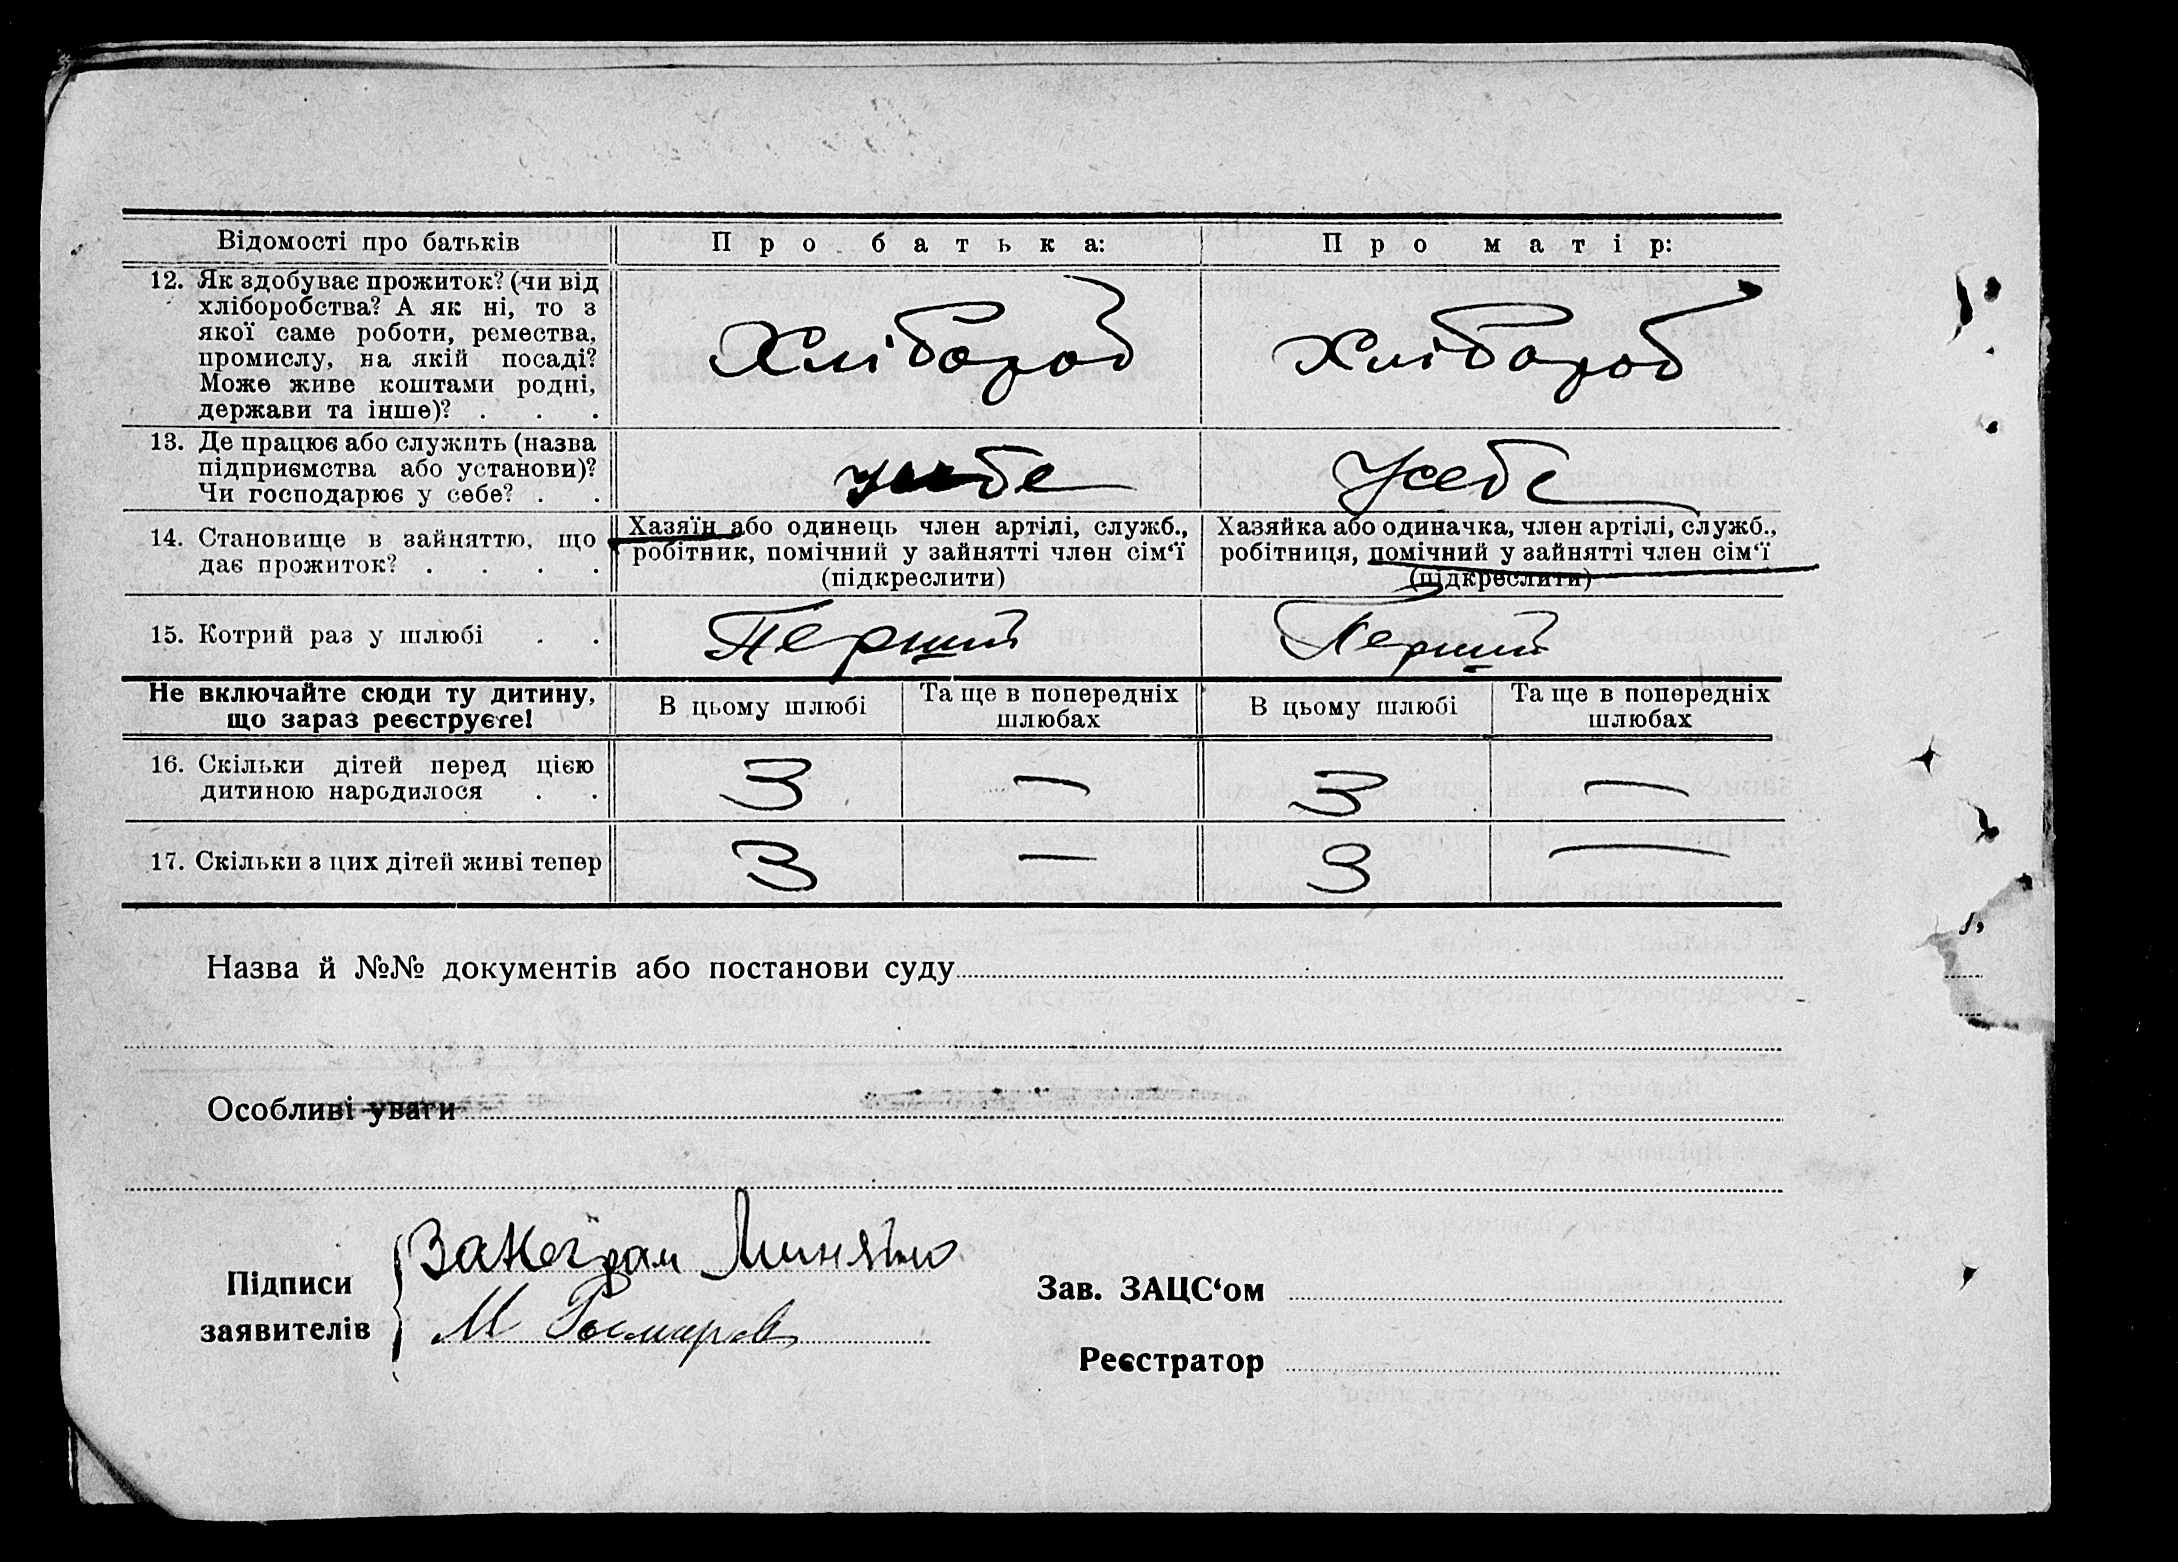 Відомості про батьків
Про батька:
Про матір:
12. Як здобуває прожиток? (чи від
хліборобства? А як ні, то з
якої саме роботи, ремества,
промислу, на якій посаді?
Може живе коштами родні,
держави та інше)? . . .
Хлібороб
Хлібороб
13. Де працює або служить (назва
підприємства або установи)?
Чи господарює у себе? . .
у себе
У себе
14. Становище в зайняттю, що
дає прожиток? . . . .
Хазяїн або одинець член артілі, служб.,
робітник, помічний у зайнятті член сім‘ї
(підкреслити)
Хазяйка або одиначка, член артілі, служб.,
робітниця, помічний у зайнятті член сім‘ї
(підкреслити)
15. Котрий раз у шлюбі . .
Перший
Перший
Не включайте сюди ту дитину,
що зараз реєструєте!
В цьому шлюбі
Та ще в попередніх
шлюбах
В цьому шлюбі
Та ще в попередніх
шлюбах
16. Скільки дітей перед цією
дитиною народилося . .
3 — 3 —
17. Скільки з цих дітей живі тепер
3 — 3 —
Назва й №№ документів або постанови суду
Особливі уваги
Підписи
заявителів
М
Зав. ЗАЦС‘ом
Реєстратор